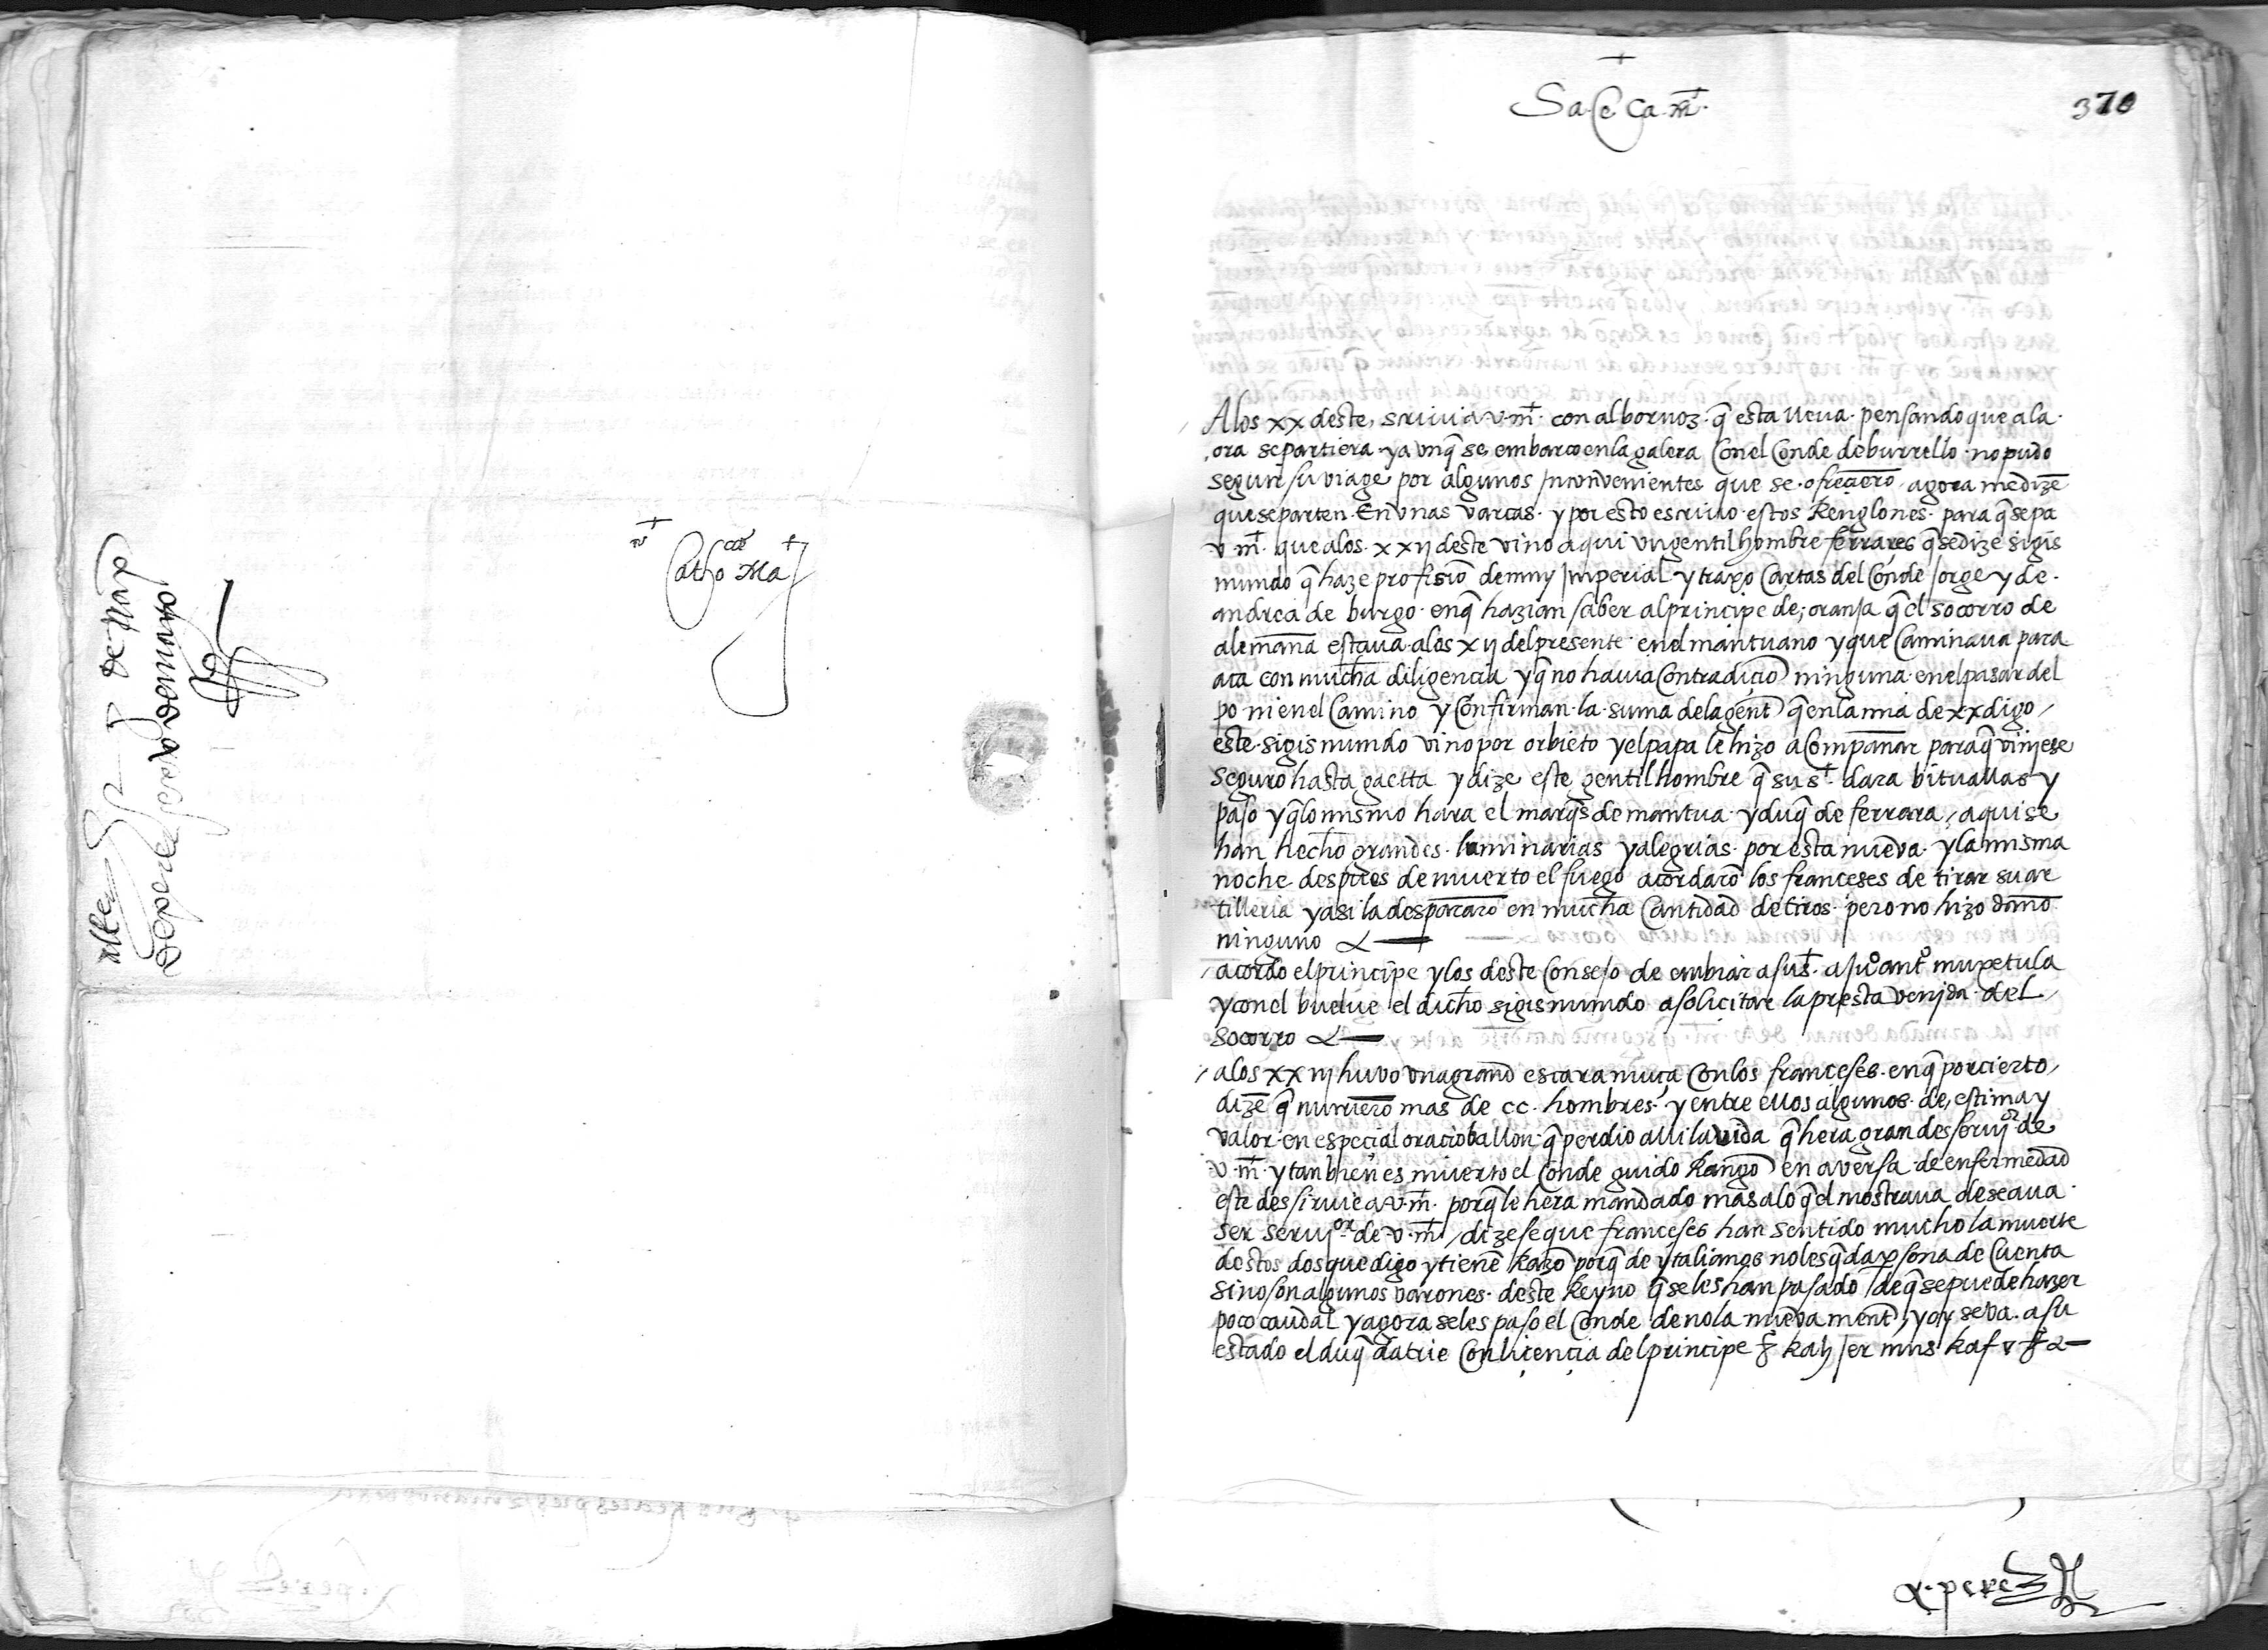 Sa. Ce. Ca. mt.
370
A los xx deste, scrivi a v. mt. con albornoz. q̄ esta lleva. pensando que a la.
ora se partiera. ya vnq̄ se embarco en la galera Con el Conde de burrello. no pudo
seguir su viage por algunos Inconvenientes que se ofrecierō, agora me dizē
que se parten. En vnas varcas. y por esto escrivo estos Renglones. para q̄ sepa
v. mt. que a los. xxij deste vino aqui vn gentilhombre ferrares q̄ se dize sigis
mundo q̄ haze profisiō de muy Imperial y traxo Cartas del Conde Jorge y de.
andrea de burgo. en q̄ hazian saber al principe de, oranja q̄ el socorro de
alemana estava. a los xij del presente en el mantuano y que Caminava para
aca con mucha diligencia y q̄ no havia Contradiciō ninguna. en el pasar del
po ni en el Camino y Confirman. la. suma de la gent q̄ en la mia de xx digo /
este. sigismundo vino por orbieto y el papa le hizo aCompanar para q̄ viniese
seguro hasta gaetta y dize este gentilhombre q̄ su st. dara bituallas y
paso y q̄ lo mismo hara el marq̄s de mantua y duq̄ de ferrara, aqui se
han hecho grandes. luminarias y alegrias. por esta nueva. y la misma
noche despues de muerto el fuego acordarō los franceses de tirar su ar
tilleria y asi la despararō en mucha Cantidad de tiros. pero no hizo dano
ninguno
acordo el principe y los deste Consejo de embiar a su st. a ju° ant° muxetula
y con el buelve el dicho sigismundo a solicitar la presta venjda. del /
socorro
/ a los xxiij huvo vna grand escaramuça Con los franceses. en q̄ por cierto /
dizē q̄ murierō mas de cc. hombres. y entre ellos algunos. de, estima y
valor. en especial oracio ballon. q̄ perdio alli la vida q̄ hera gran desservjor de
v. mt. y tanbien es muerto el Conde guido Rangō en aversa de enfermedad
este dessirvie a v. mt. porq̄ le hera mandado mas a lo q̄ el mostrava deseava.
ser servjor de v. mt. / dizese que franceses han sentido mucho la muerte
destos dos que digo y tienē Razō porq̄ de ytalianos no les q̄da p̱sona de Cuenta
si no son algunos varones. deste Reyno q̄ se les han pasado de q̄ se puede hazer
poco caudal y agora se les paso el Conde de nola nueva ment, y oy se va. a su
estado el duq̄ datrie Con licencia del principe
A. perez
mt
Cathca Mat